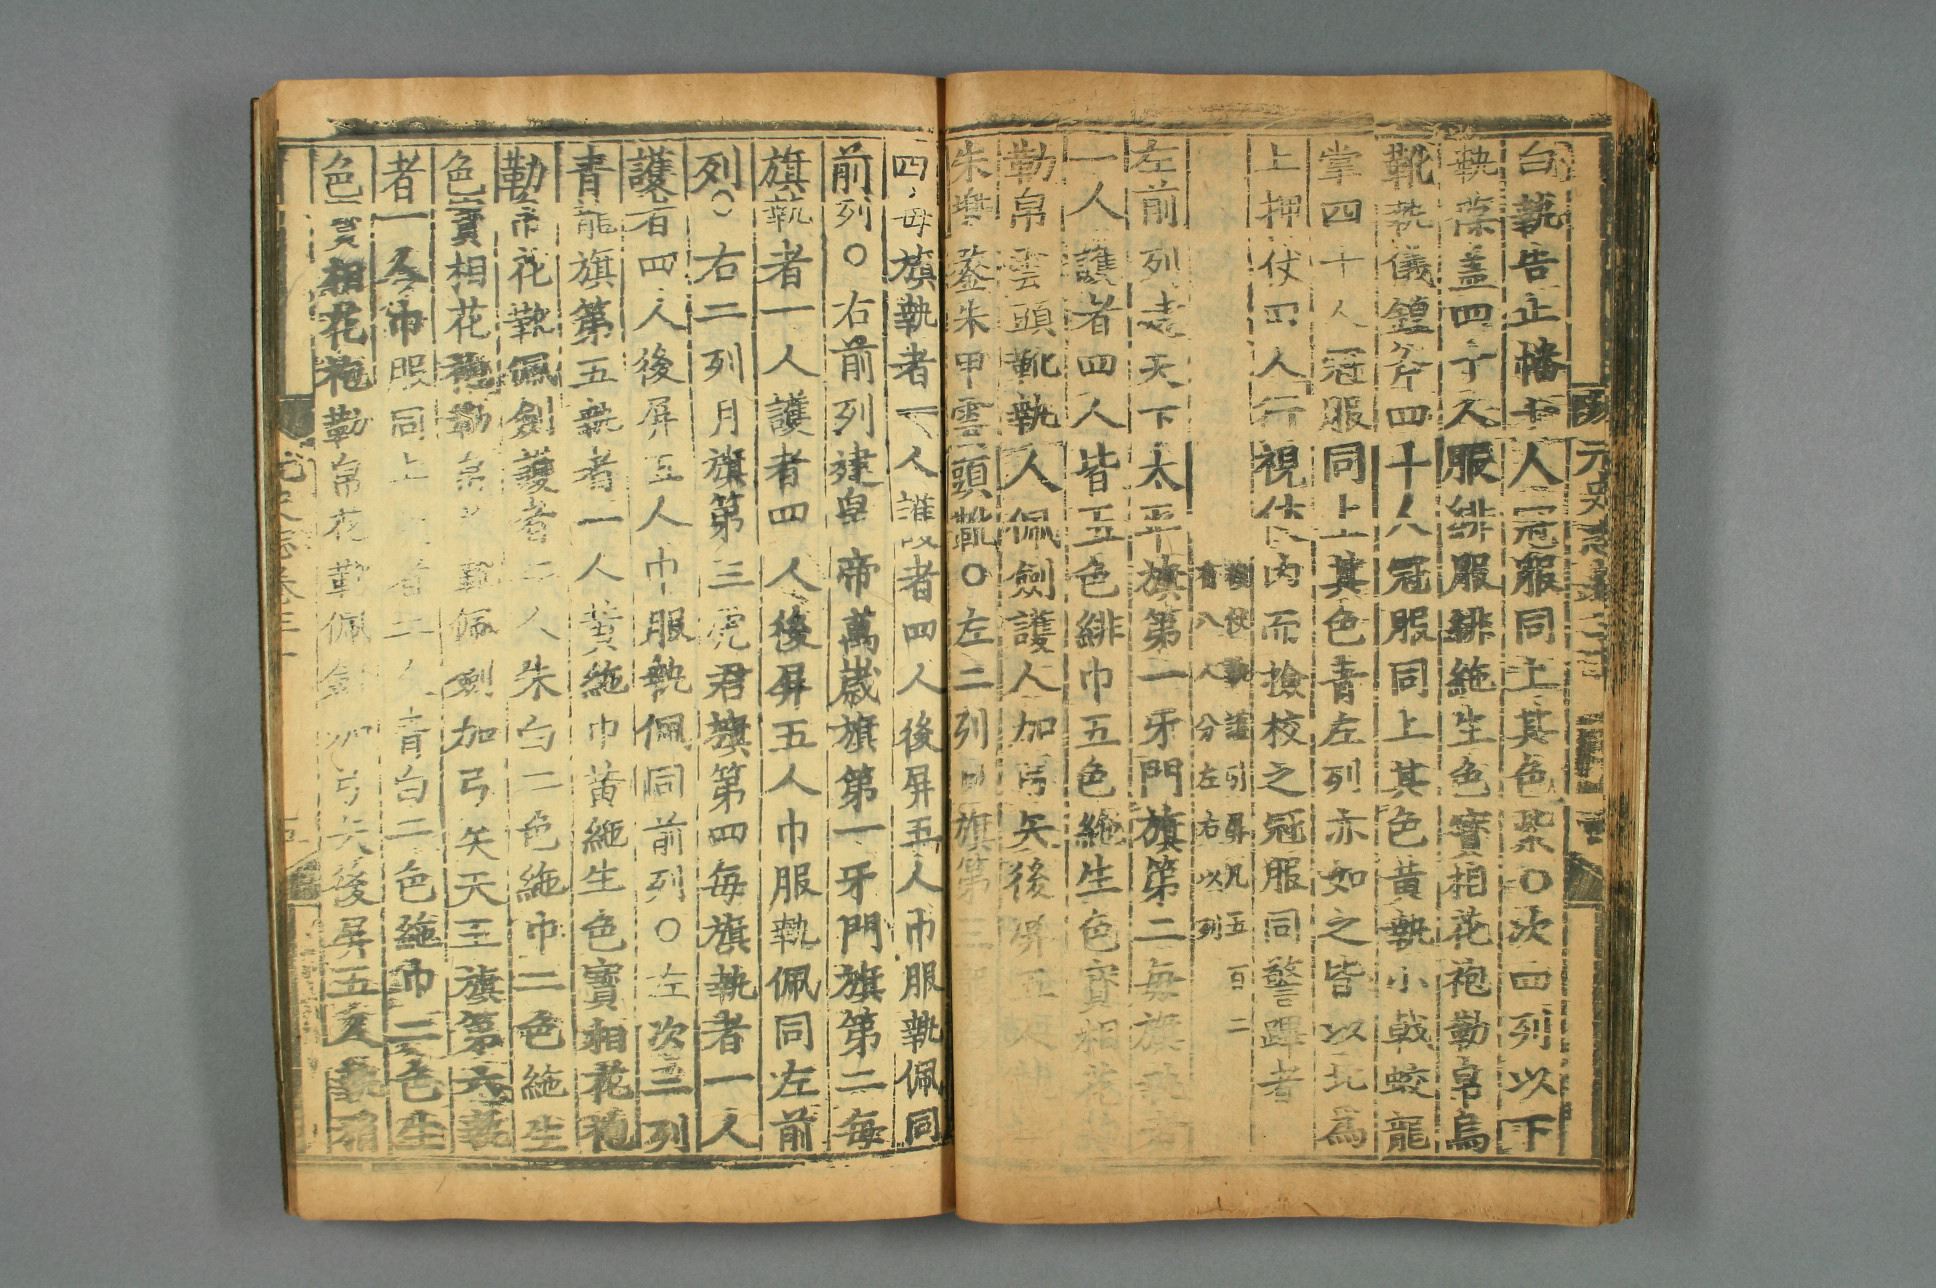 元史志卷三十
白執告止幡十人冠服同上其色紫○次四列以下
執葆蓋四十人服緋服緋絁生色寶相花袍勒帛烏
靴執儀鍠斧四十人冠服同上其色黃執小戟蛟龍
掌四十人冠服同上其色青左列亦如之皆以北爲
上押仗四人行視仗內而撿校之冠服同警蹕者
執護引屏凡五百二
八人分左右以列
左前列建天下太平旗第一牙門旗第二每旗執者
一人護者四人皆五色緋巾五色絁生色寶相花袍
勒帛雲頭靴執人佩劍護人加弓矢後屏五人
朱甲雲頭靴○左二列日旗第三龍
四每旗執者一人護者四人後屏五人巾服執佩同
前列○右前列建皇帝萬歲旗第一牙門旗第二每
旗執者一人護者四人後屏五人巾服執佩同左前
列○右二列月旗第三虎君旗第四每旗執者一人
護者四人後屏五人巾服執佩同前列○左次三列
青龍旗第五執者一人黃絁巾黃絁生色寶相花袍
勒帛花靴佩劍護者二人朱白二色絁巾二色絁生
色寶相花袍勒帛花靴佩劍加弓矢天王旗第六執
者一人巾服同上護者二人青白二色絁巾二色生
色寶相花袍勒帛花靴佩劍加弓矢後屏五人執矟
元史志卷三十